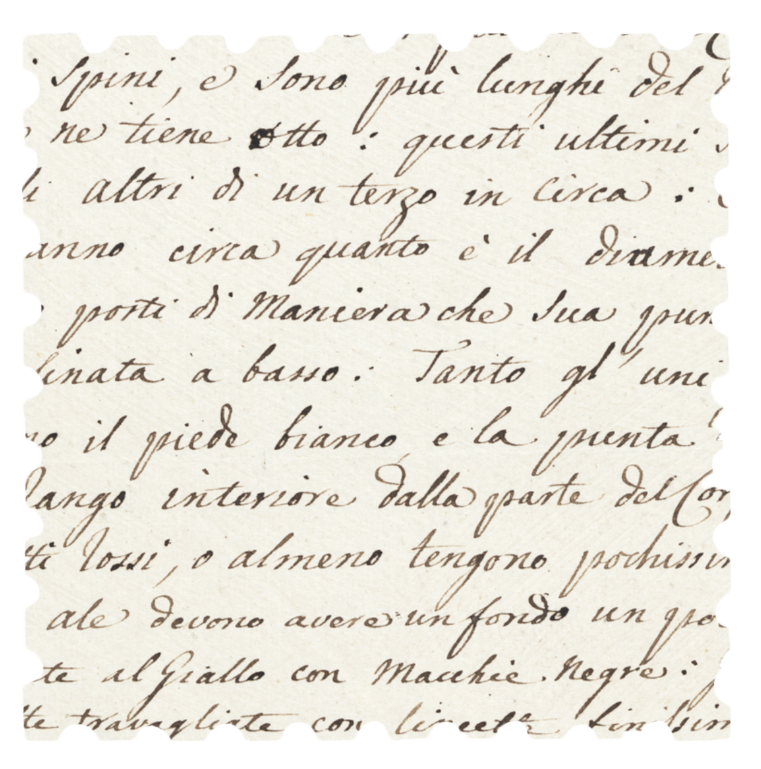 Spini, e sono più lunghi del
ne tiene otto : questi ultimi
altri di un terzo in Circa :
anno circa quanto è il diame
porti di Maniera che sua pun
linata a basso : Tanto gl' uni
no il piede bianco e la punta
Rango interiore dalla parte del Cor
tti Rossi, o almeno tengono pochissim
ale devono avere un fondo un po
te al Giallo con Macchie Negre :
te travagliate con finissim